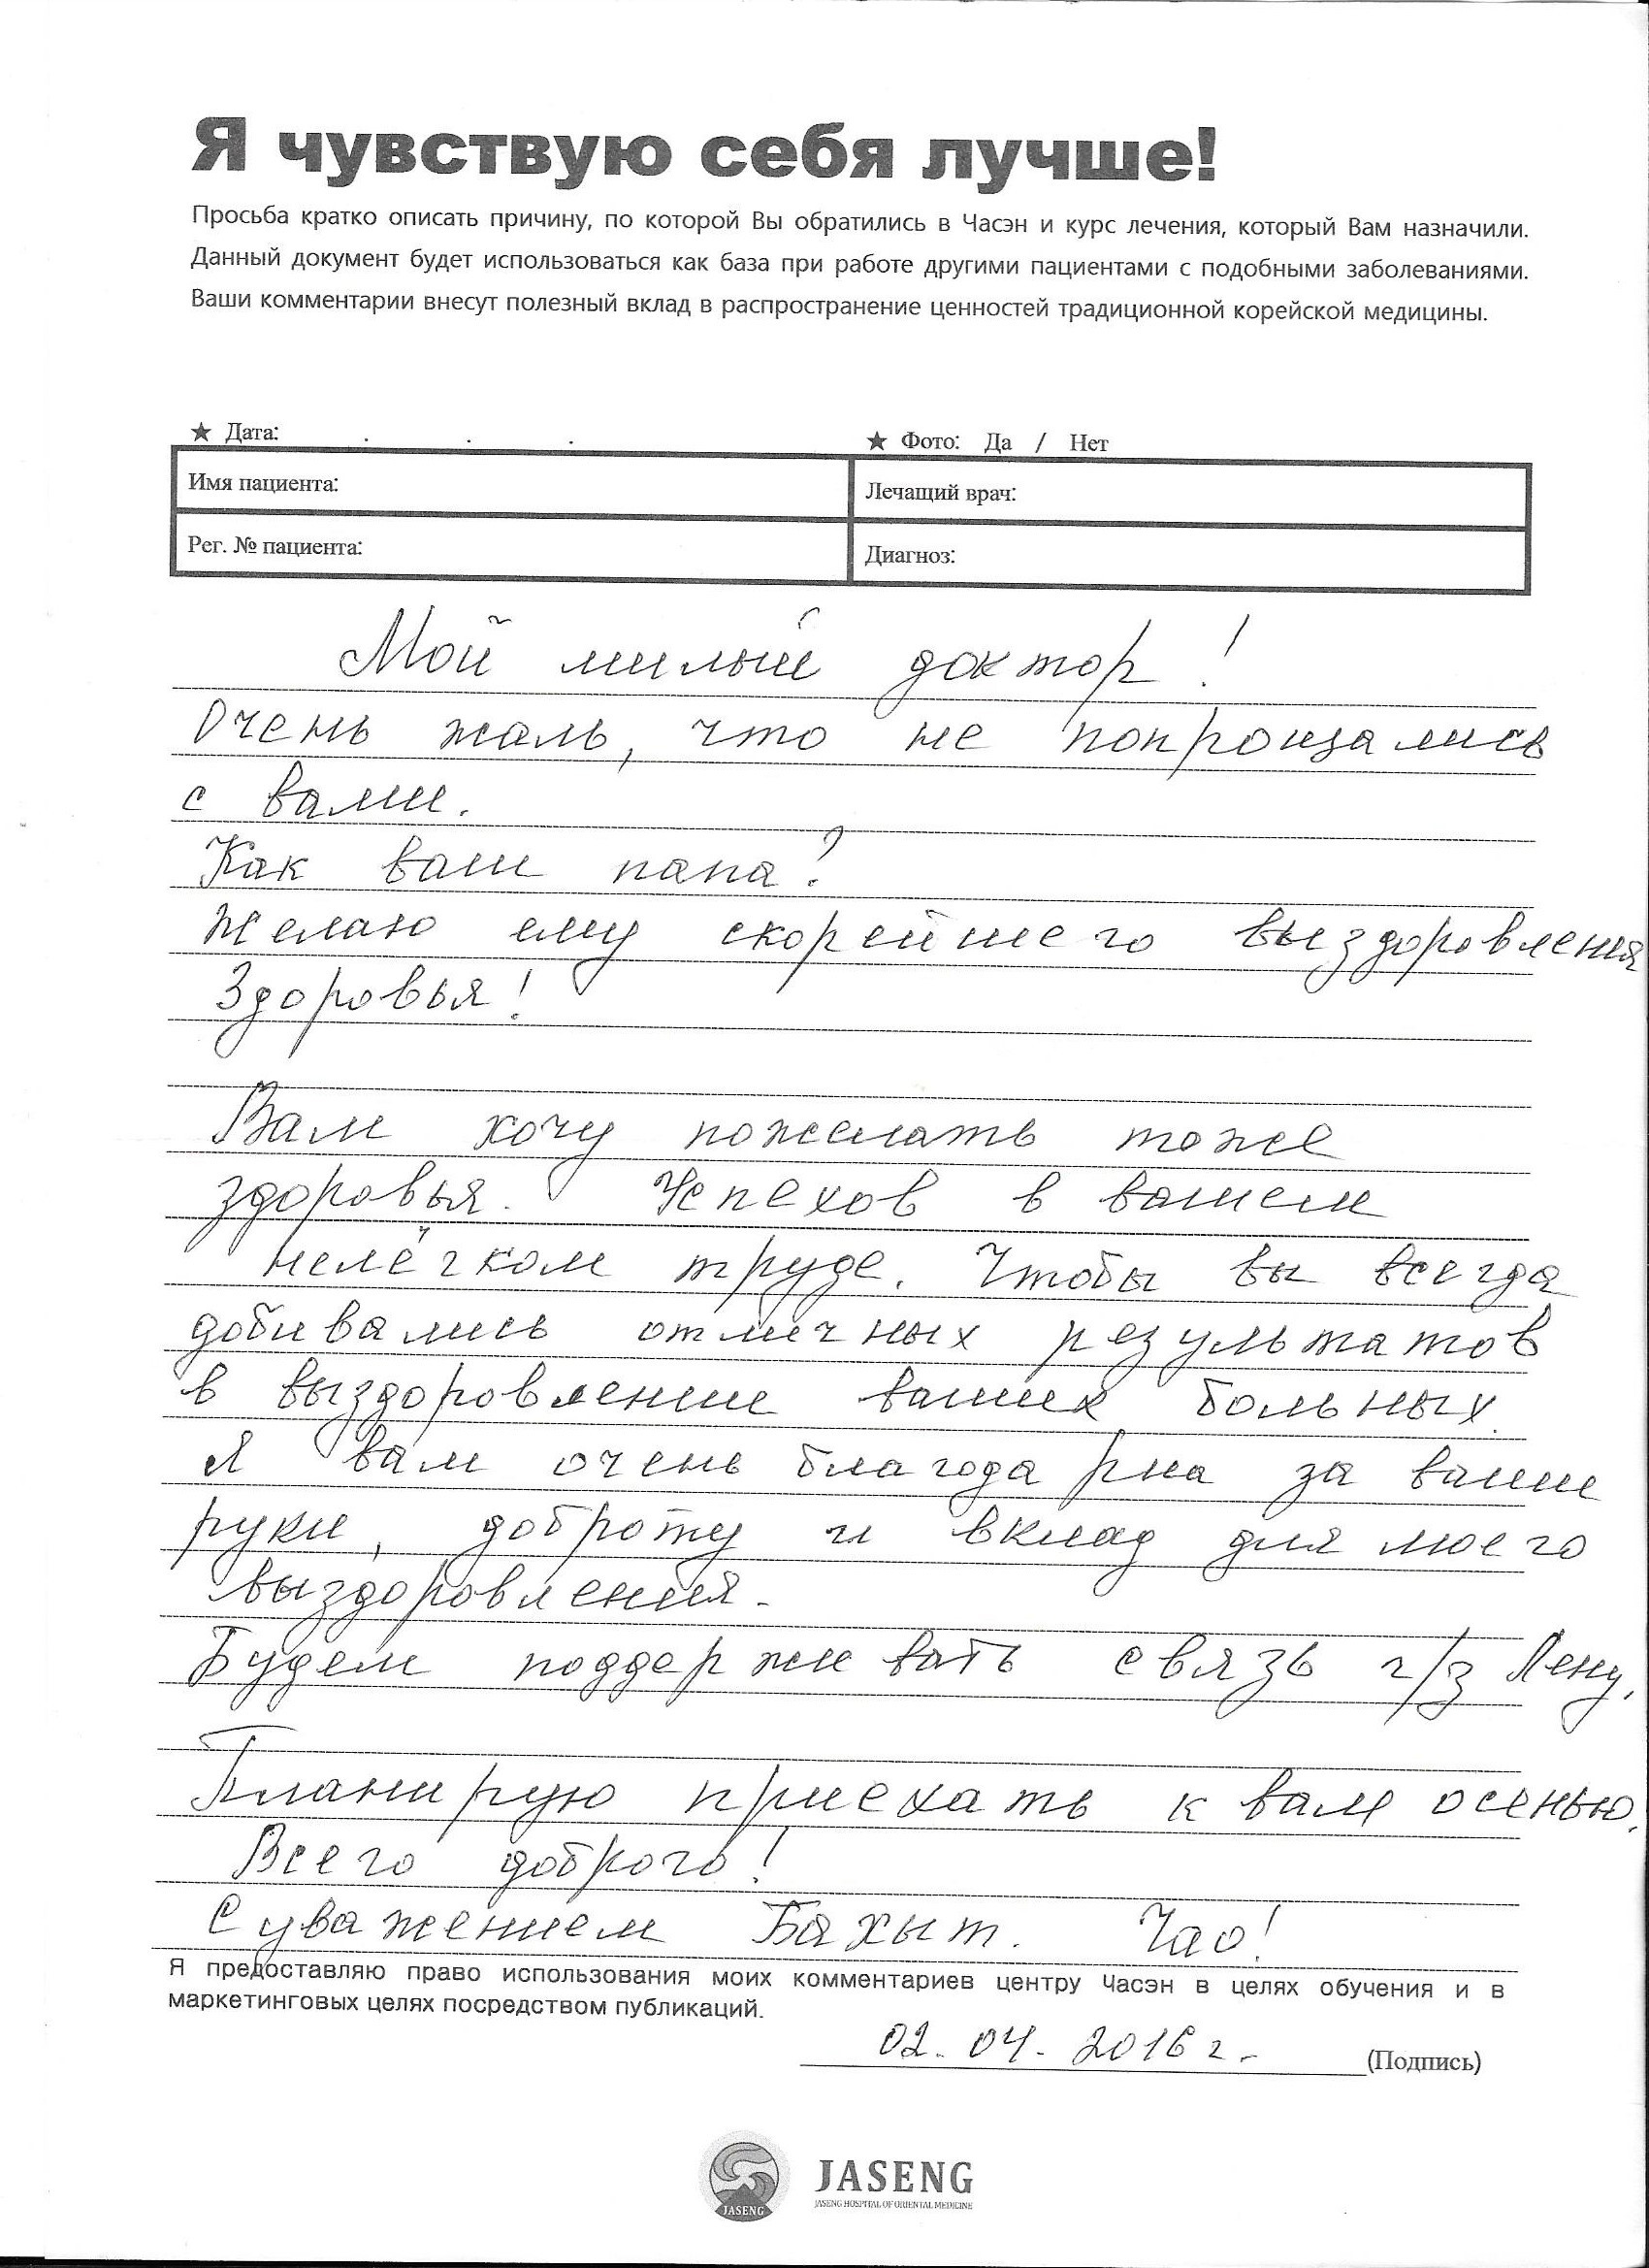 Я чувствую себя лучше!
Просьба кратко описать причину, по которой Вы обратились в Часэн и курс лечения, который Вам назначили.
Данный документ будет использоваться как база при работе другими пациентами с подобными заболеваниями.
Ваши комментарии внесут полезный вклад в распространение ценностей традиционной корейской медицины.
★ Дата: . . . ★ Фото: Да / Нет
Имя пациента: Лечащий врач:
Рег. № пациента: Диагноз:
Мой милый доктор!
Очень жаль, что не попрощались
с вами.
Как ваш папа?
Желаю ему скорейшего выздоровления
Здоровья!
Вам хочу пожелать тоже
здоровья. Успехов в вашем
нелёгком труде. Чтобы вы всегда
добивались отличных результатов
в выздоровление ваших больных.
Я вам очень благодарна за ваши
руки, доброту и вклад для моего
выздоровления.
Будем поддерживать связь ч/з Лену.
Планирую приехать к вам осенью.
Всего доброго!
С уважением Бахыт. Чао!
Я предоставляю право использования моих комментариев центру Часэн в целях обучения и в
маркетинговых целях посредством публикаций.
02.04.2016 г. (Подпись)
JASENG
JASENG HOSPITAL OF ORIENTAL MEDICINE
JASENG